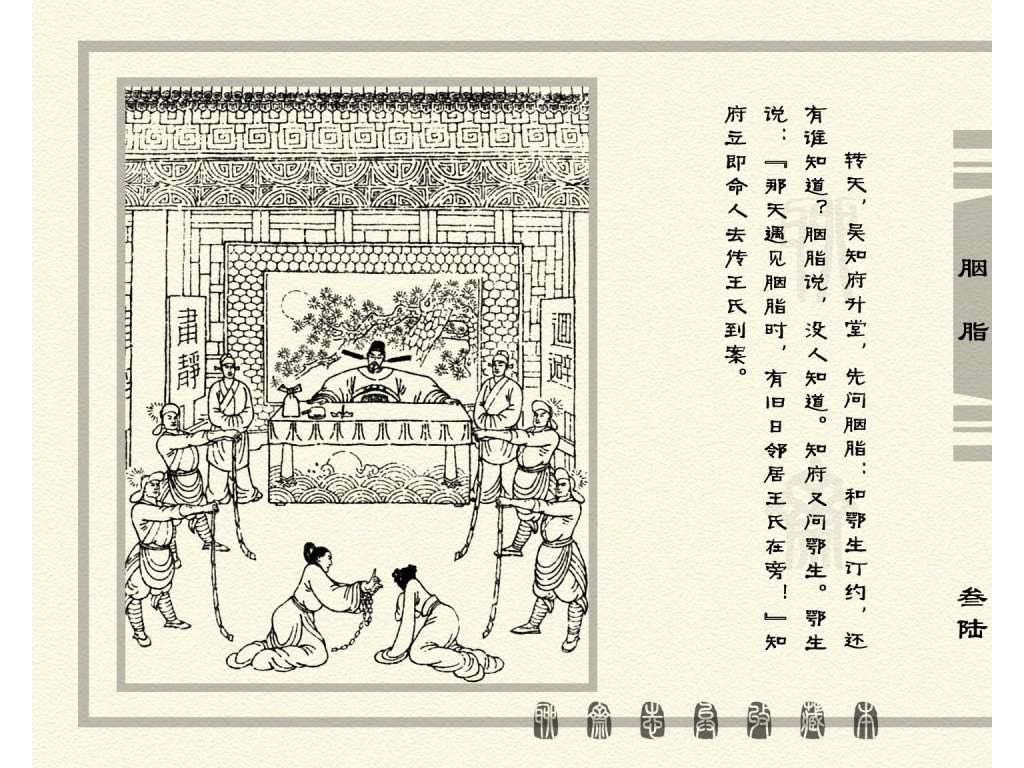 转天，吴知府升堂，先问胭脂：和鄂生订约，还
有谁知道？胭脂说，没人知道。知府又问鄂生。鄂生
说：『那天遇见胭脂时，有旧日邻居王氏在旁！』知
府立即命人去传王氏到案。
胭脂
叁陆
肃静
回避
聊斋志异珍藏本